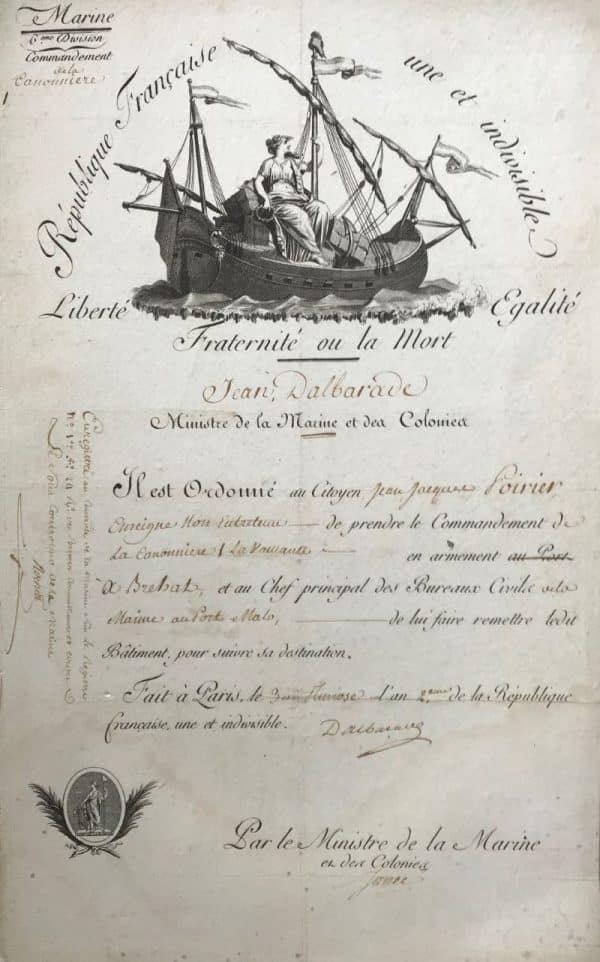 Marine
6.eme Division
Commandement
de la
Canonnière
République Française une et indivisible
Liberté Egalité
Fraternité ou la Mort
Jean, Dalbarade
Ministre de la Marine et des Colonies
Il est Ordonné au Citoyen Jean Jacques Poirier,
Enseigne Non de prendre le Commandement de
La Canonnière La en armement au Port
à Brehat, et au Chef principal des Bureaux Civils de la
Marine au Port Malo, de lui faire remettre ledit
Bâtiment, pour suivre sa destination.
Fait à Paris, le l'an 2.eme de la République
française, une et indivisible. Dalbarade
Enregistré au de la Marine
Le Sous de la Marine
Par le Ministre de la Marine
et des Colonies